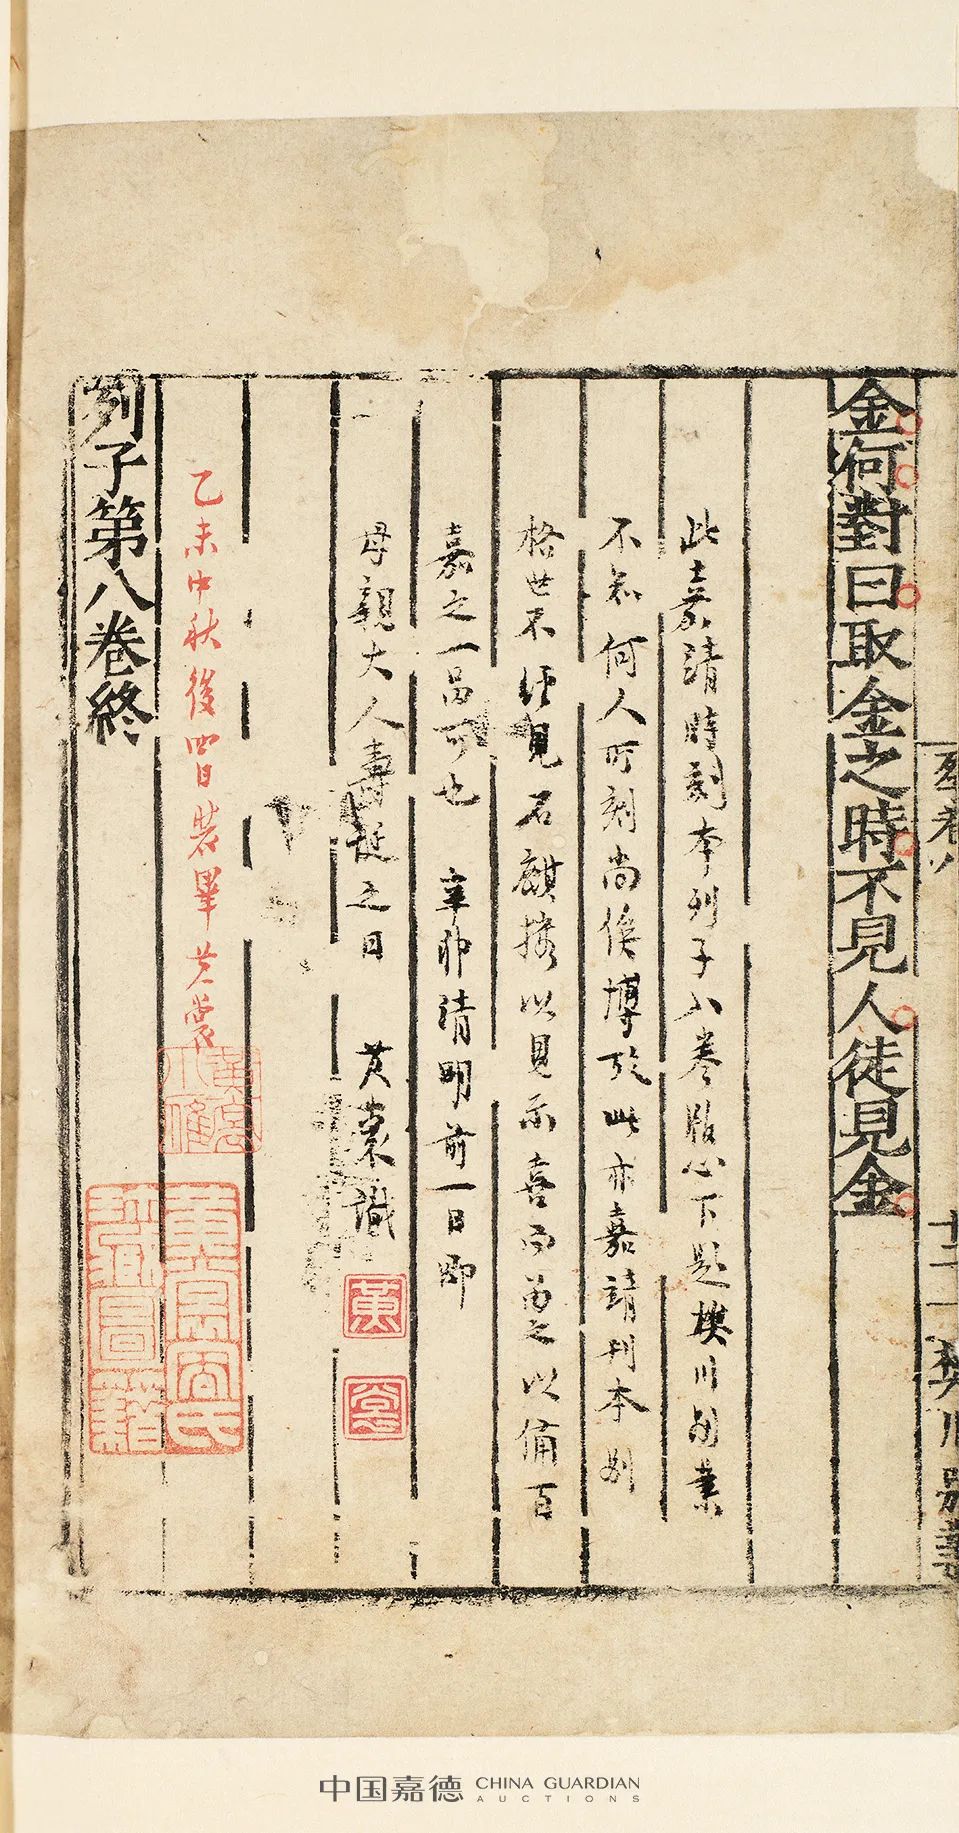 金何對曰取金之時不見人徒見金
此嘉靖時刻本列子八卷版心下題樊川別業
不知何人所刻尚俟博攷此亦嘉靖刊本別
格世不經見石麒搜以見示喜而留之以備百
嘉之一品可也 辛卯清明前一日即
母親大人壽誕之日 黃裳識
黃
裳
乙未中秋後四日裝畢黃裳
黃裳
小雁
黃裳容氏
珍藏圖籍
列子第八卷終
列卷八
二十一
樊川別業
中国嘉德 CHINA GUARDIAN
AUCTIONS